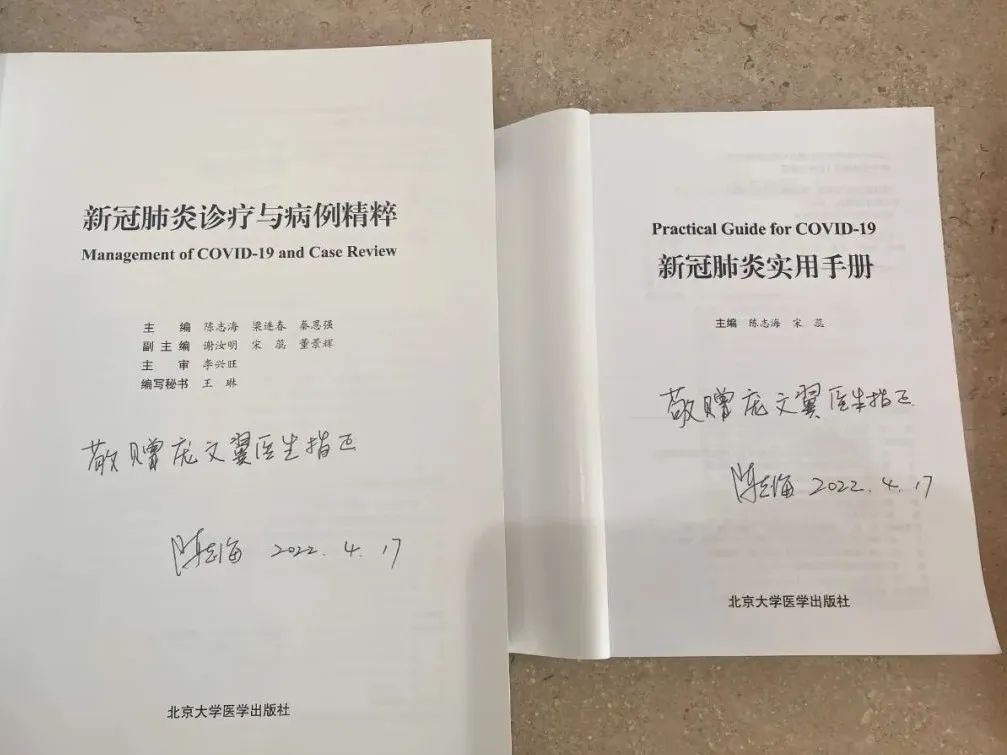 新冠肺炎诊疗与病例精粹
Management of COVID-19 and Case Review
主 编 陈志海 梁连春 秦恩强
副主编 谢汝明 宋蕊 董景辉
主 审 李兴旺
编写秘书 王琳
敬赠庞文翼医生指正
陈志海 2022.4.17
北京大学医学出版社
Practical Guide for COVID-19
新冠肺炎实用手册
主编 陈志海 宋蕊
敬赠庞文翼医生指正.
陈志海 2022.4.17
北京大学医学出版社